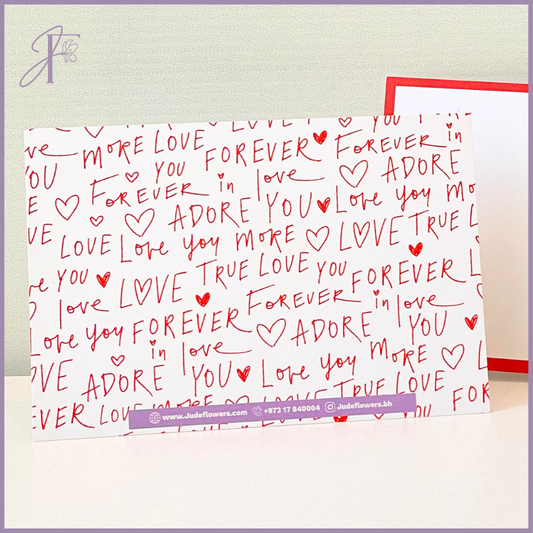 JF
MORE LOVE
YOU FOREVER Forever in love YOU
FOREVER in love ADORE
ADORE YOU Love you MORE
LOVE Love you MORE LOVE TRUE LOVE
YOU LOVE TRUE LOVE YOU FOREVER
love FOREVER in love
Love you FOREVER ADORE YOU
in love Love you MORE
ADORE YOU LOVE TRUE LOVE
EVER LOVE YOU FOR
www.Judeflowers.com +973 17 640004 Judeflowers.bh